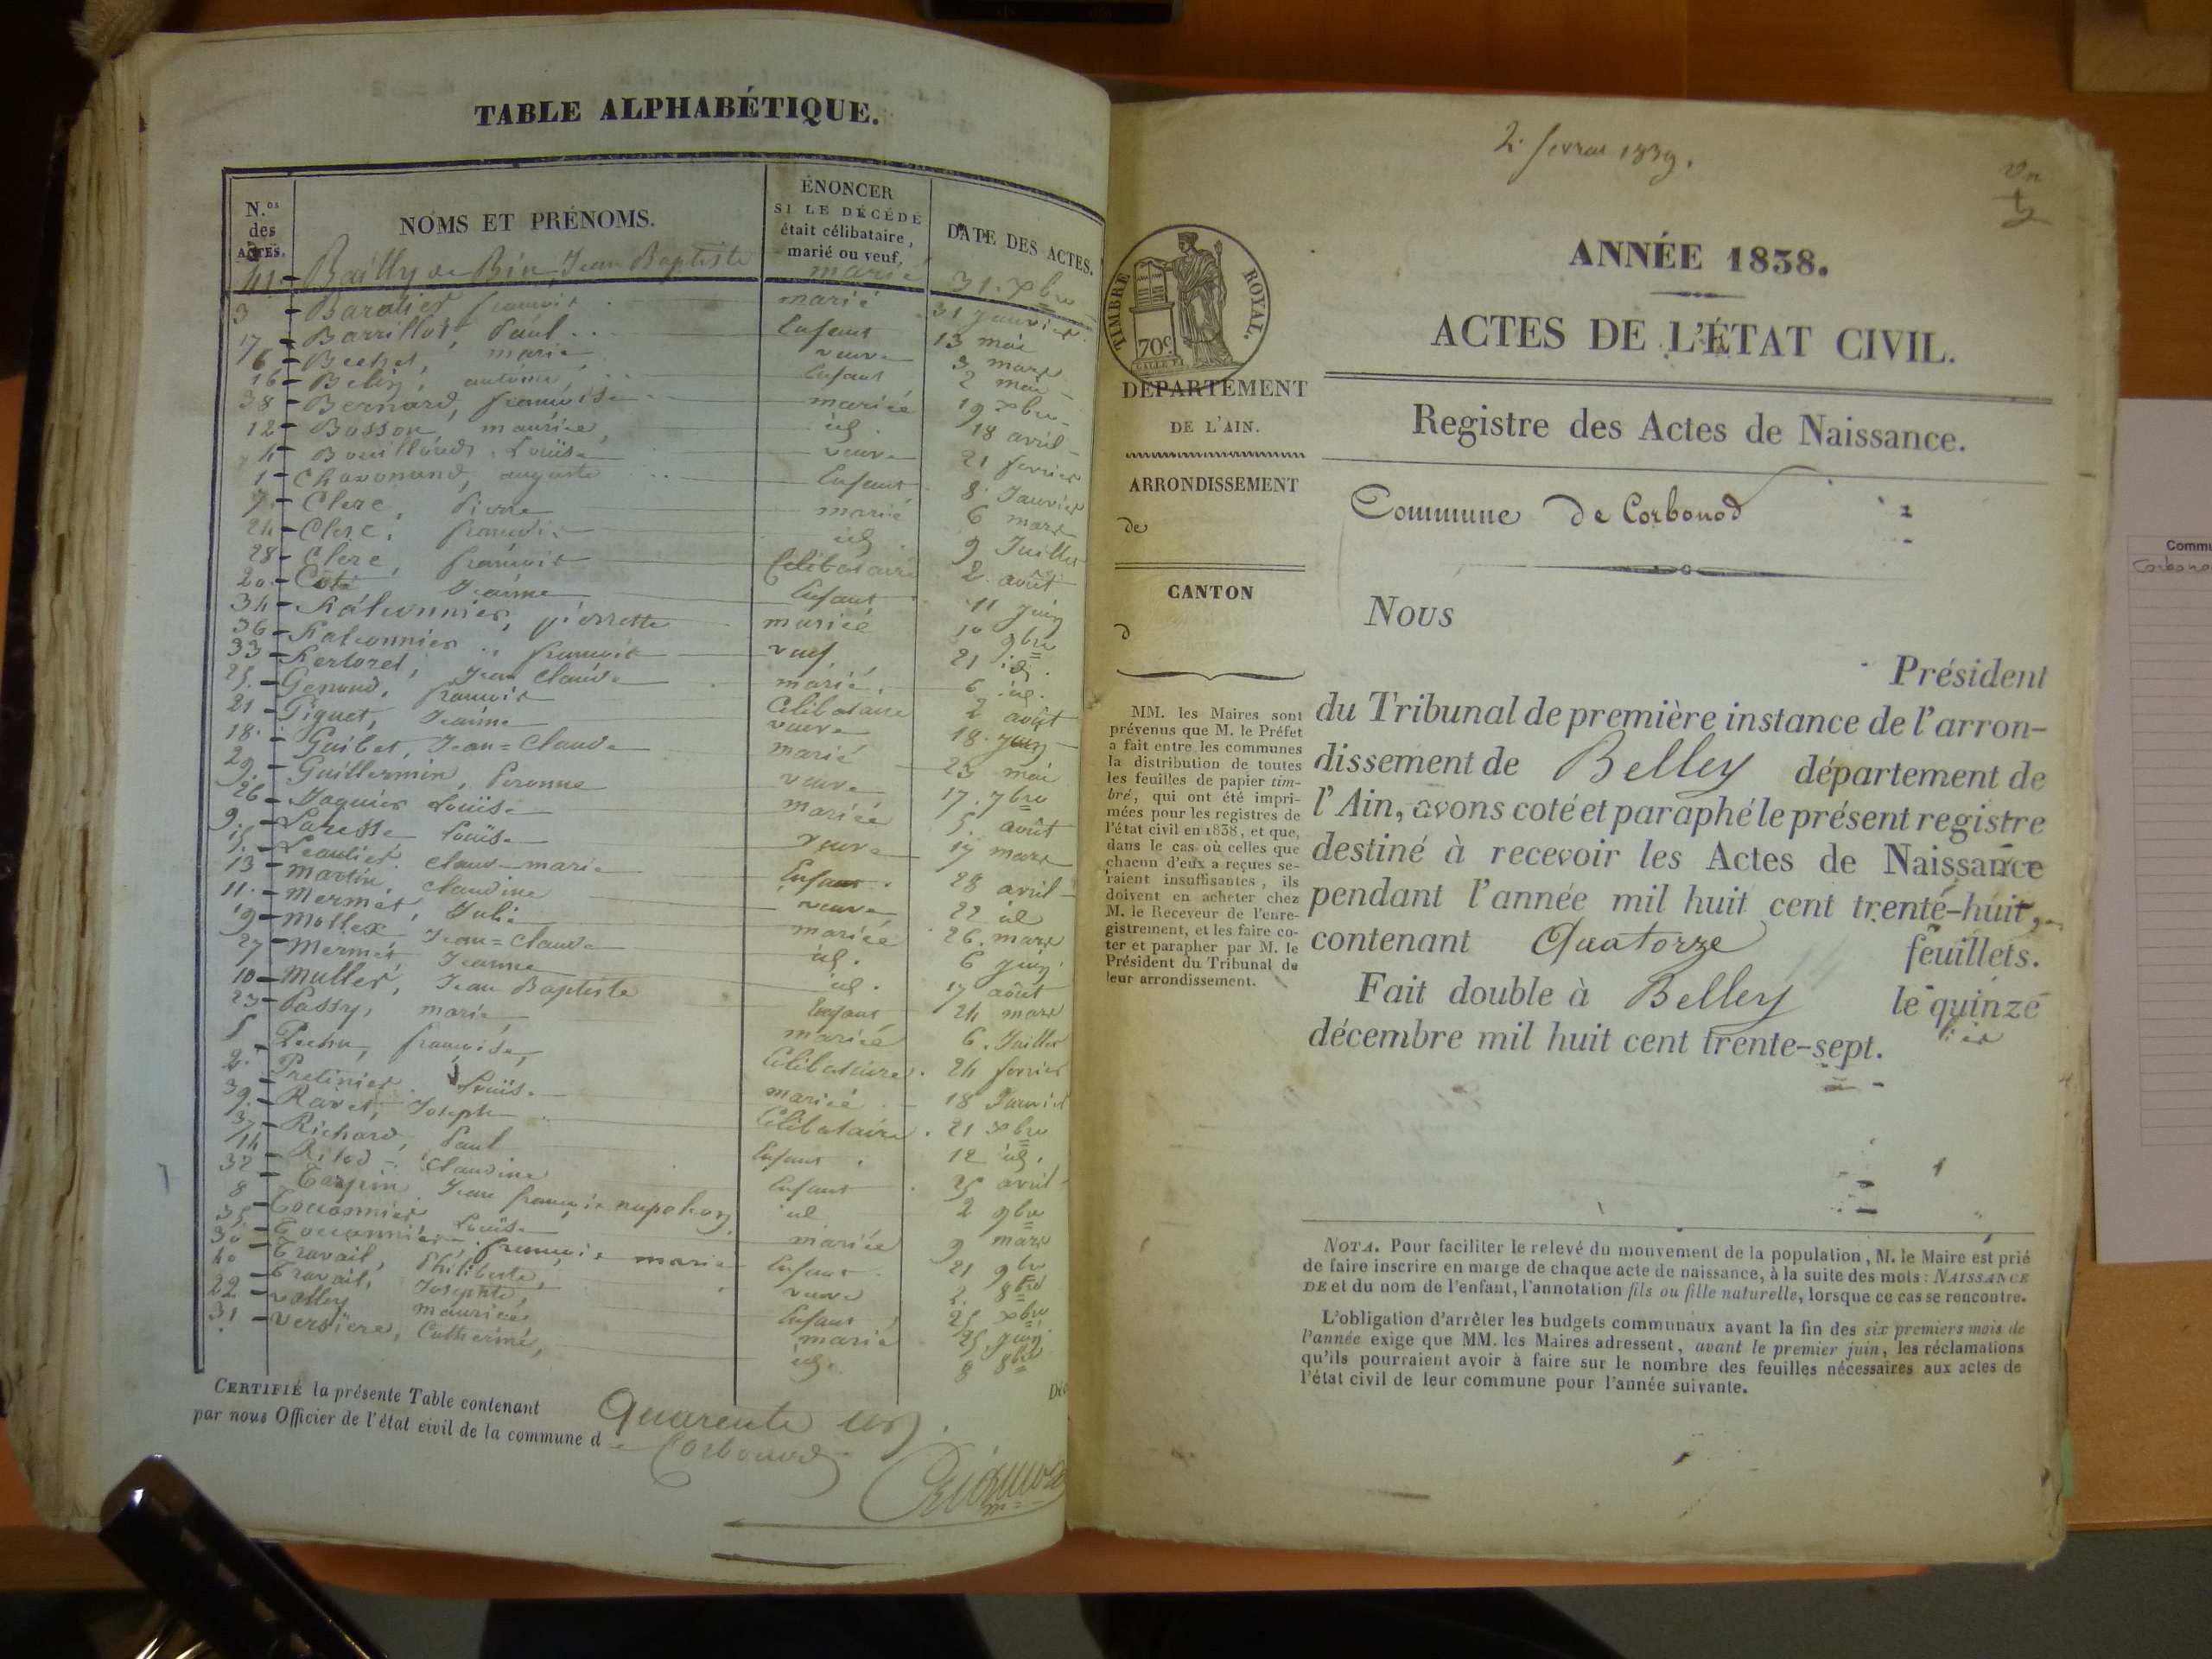 TABLE ALPHABÉTIQUE.
N.os des ACTES. NOMS ET PRÉNOMS. ÉNONCER SI LE DÉCÉDÉ était célibataire, marié ou veuf. DATE DES ACTES.
41 - Bailly Jean Baptiste marié 31. Xbre
3 - françois marié 31 janvier
17 - Barrillot, Paul enfant 13 mai
6 - marie veuve 3 mars
16 - enfant 2 mai
38 - Bernard, françoise mariée 19 Xbre
12 - Bosson maurice, id. 18 avril
4 - Louise veuve 21 fevrier
1 - auguste Enfant 8. Janvier
7. - Clerc, Pierre marié 6 mars
24 - Clerc, id. 9 Juillet
28 - Clerc, françois Célibataire 2. août
20. - Jeanne Enfant 11 juin
34 - pierrette mariée 10 9bre
36 - françois veuf 21 id.
33 - Jean Claude marié. 6 id.
25. - Genoud, françois Célibataire 2 août
21 - Jeanne veuve 18. juin
18. - Guibet, Jean=Claude marié 23 mai
29. - Guillermin, Peronne veuve 17. 7bre
26 - Louise mariée 5. août
9. - Louise veuve 17 mars
15. - Claude marie Enfant 28 avril
13 - martin, claudine veuve 22 id
11. - mermet, Julie mariée 26. mars
19 - mollex Jean=Claude id. 6 juin
27 - mermet Jeanne id. 17 août
10 - muller, Jean Baptiste Enfant 24 mars
23 - Passy, marie mariée 6. Juillet
5 françoise, Célibataire. 24 fevrier
2. - Louise mariée 18 Janvier
39. - Ravet, Joseph Célibataire. 21 Xbre
37 - Richard, Paul Enfant. 12 id.
14 - Claudine Enfant 25 avril
32 - Jean françois napoleon id 2 9bre
8 - Louise mariée 9 mars
35. - françoise marie Enfant 21 9bre
30 - Travail, Philiberte, veuve 2. 8bre
40 - Travail, Josephte, Enfant 25 Xbre
22 - maurice marié 25. juin
31 - Catherine, id. 8 8bre
CERTIFIÉ la présente Table contenant Quarente un.
par nous Officier de l'état civil de la commune d e Corbonod
2. fevrier 1839.
ANNÉE 1838.
ACTES DE L'ÉTAT CIVIL.
Registre des Actes de Naissance.
Commune de Corbonod
TIMBRE ROYAL.
70c
DÉPARTEMENT
DE L'AIN.
ARRONDISSEMENT
de
CANTON
d
MM. les Maires sont
prévenus que M. le Préfet
a fait entre les communes
la distribution de toutes
les feuilles de papier tim-
bré, qui ont été impri-
mées pour les registres de
l'état civil en 1838, et que,
dans le cas où celles que
chacun d'eux a reçues se-
raient insuffisantes, ils
doivent en acheter chez
M. le Receveur de l'enre-
gistrement, et les faire co-
ter et parapher par M. le
Président du Tribunal de
leur arrondissement.
Nous
Président
du Tribunal de première instance de l'arron-
dissement de Belley département de
l'Ain, avons coté et paraphé le présent registre
destiné à recevoir les Actes de Naissance
pendant l'année mil huit cent trente-huit,
contenant Quatorze feuillets.
Fait double à Belley le quinze
décembre mil huit cent trente-sept.
NOTA. Pour faciliter le relevé du mouvement de la population, M. le Maire est prié
de faire inscrire en marge de chaque acte de naissance, à la suite des mots : NAISSANCE
DE et du nom de l'enfant, l'annotation fils ou fille naturelle, lorsque ce cas se rencontre.
L'obligation d'arrêter les budgets communaux avant la fin des six premiers mois de
l'année exige que MM. les Maires adressent, avant le premier juin, les réclamations
qu'ils pourraient avoir à faire sur le nombre des feuilles nécessaires aux actes de
l'état civil de leur commune pour l'année suivante.
Commu
Corbono